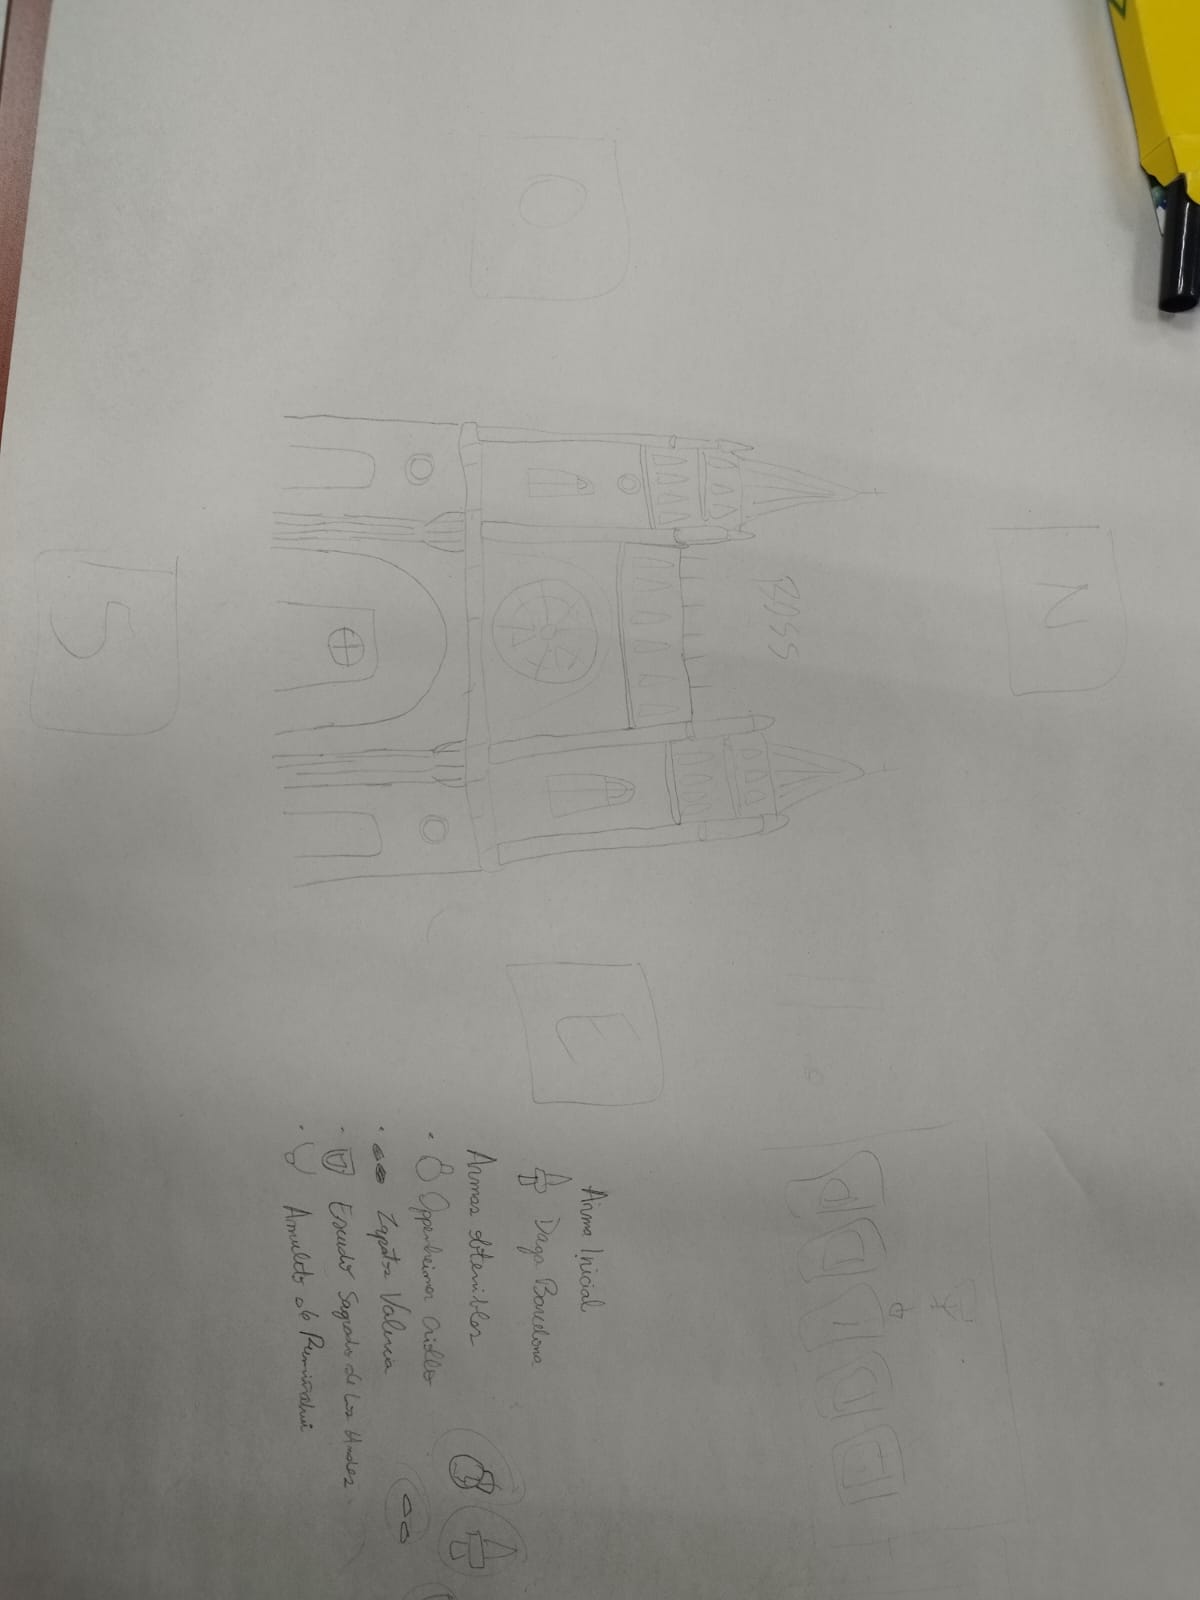 N
BOSS
O
E
S
Arma Inicial
Daga Barcelona
Armas obtenibles
• Oppenheimer Criollo
• Zapatos Valencia
• Escudo Sagrado de Los Andes
• Amuleto de Rumiñahui